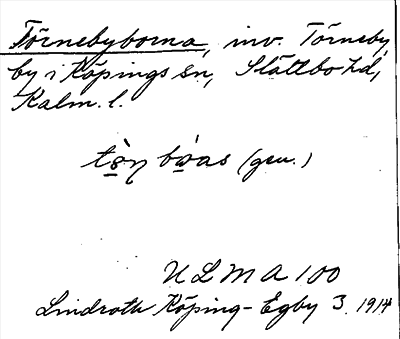 Törnebyborna, inv. Törneby,
by i Köpings sn, Slättbo hd,
Kalm. l.
tö̀n bo̊as (gen.)
ULMA 100
Lindroth Köping-Egby 3. 1914